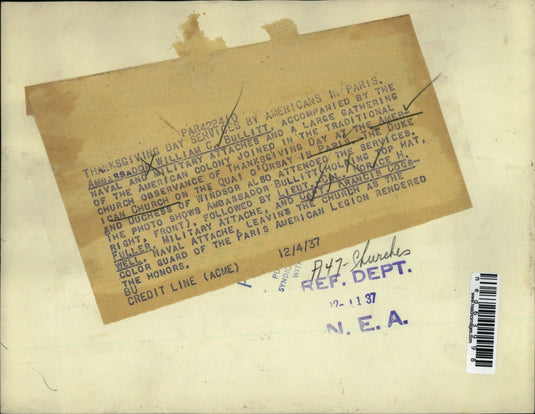 PAR422410
THANKSGIVING DAY SERVICES BY AMERICANS IN PARIS.
AMBASSADOR WILLIAM C. BULLITT, ACCOMPANIED BY THE
NAVAL AND MILITARY ATTACHES AND A LARGE GATHERING
OF THE AMERICAN COLONY JOINED IN THE TRADITIONAL
CHURCH OBSERVANCE OF THANKSGIVING DAY AT THE AMER-
ICAN CHURCH ON THE QUAI D'ORSAY IN PARIS. THE DUKE
AND DUCHESS OF WINDSOR ALSO ATTENDED THE SERVICES.
THE PHOTO SHOWS AMBASSADOR BULLITT (HOLDING TOP HAT,
RIGHT, FRONT), FOLLOWED BY LIEUT. COL. HORACE H.
FULLER, MILITARY ATTACHE, AND FRANCIS COGS-
WELL, NAVAL ATTACHE, LEAVING THE CHURCH AS THE
COLOR GUARD OF THE PARIS AMERICAN LEGION RENDERED
THE HONORS.
BU
CREDIT LINE (ACME) 12/4/37
SYNDIC
WIT
A47-Churches
REF. DEPT.
12-11 37
N. E. A.